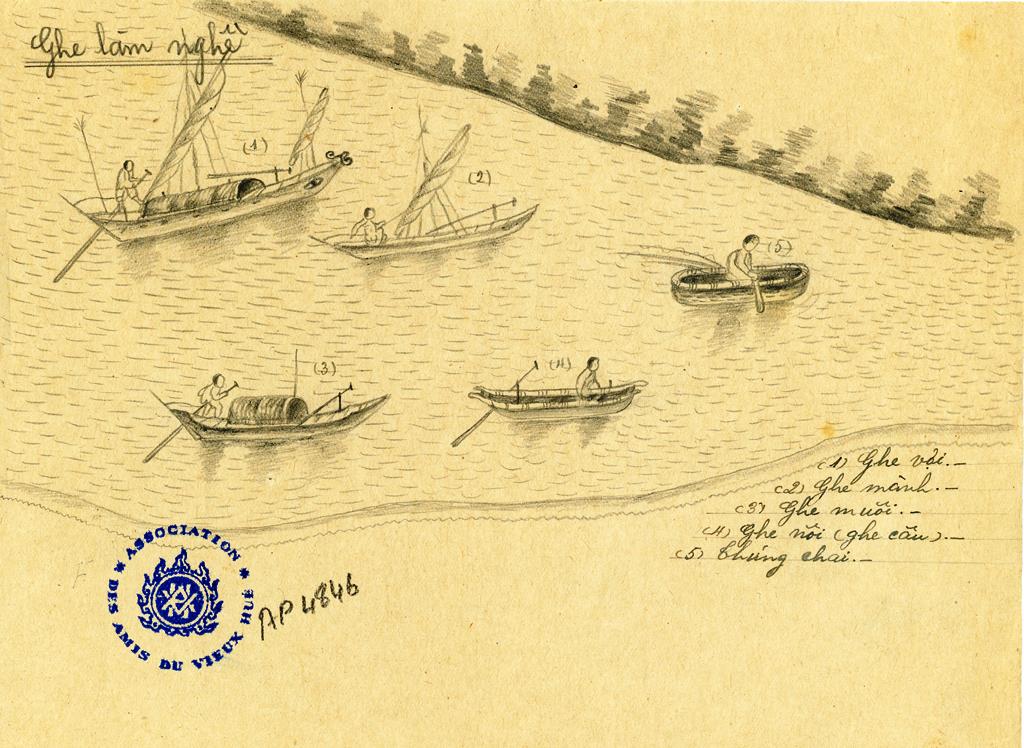 Ghe làm nghề
(1)
(2)
(5)
(3)
(4)
(1) Ghe vọi.-
(2) Ghe mành.-
(3) Ghe muối.-
(4) Ghe nôi (ghe câu).-
(5) Thúng chai.-
* ASSOCIATION * DES AMIS DU VIEUX HUÉ
AP 4846